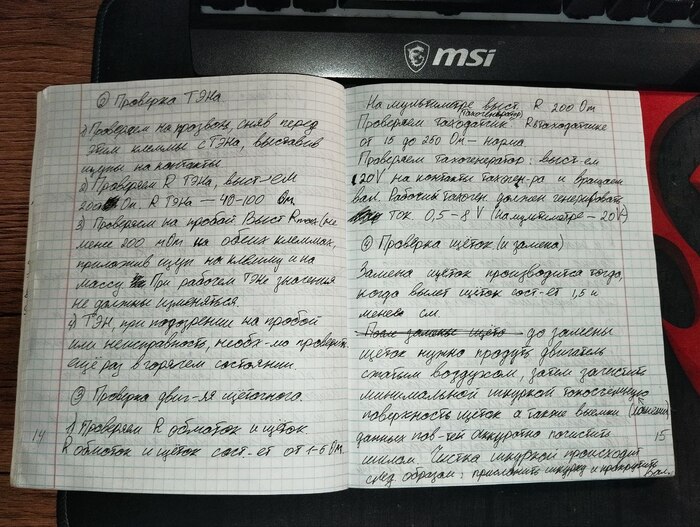 msi
② Проверка ТЭНа
1) Проверяем на прозвон, сняв перед
этим клеммы с ТЭНа, выставив
щупы на контакты
2) Проверяем R ТЭНа, выст-ем
200 Om. R ТЭНа — 40-100 Om
3) Проверяем на пробой. Выст Rmax (не
мене 200 mOm на обеих клеммах,
приложив щуп на клемму и на
массу. При рабочем ТЭНе значения
не должны изменяться.
4) ТЭН, при подозрении на пробой
или неисправность, необх-мо проверить
ещё раз в горячем состоянии.
③ Проверка двиг-ля щёточного
1) Проверяем R обмоток и щёток
R обмоток и щёток сост-ет от 1-6 Om
14
На мультиметре выст. R 200 Om
(тахогенератор)
Проверяем таходатчик. R таходатчике
от 15 до 250 Om — норма
Проверяем тахогенератор: выст-ем
20V на контакты тахоген-ра и вращаем
вал. Рабочий тахоген. должен генерировать
ток 0,5-8 V (на мультиметре — 20V)
Проверка щёток. (и замена)
Замена щёток производится тогда,
когда вылет щёток сост-ет 1,5 и
менее см.
После замены щёто до замены
щёток нужно продуть двигатель
сжатым воздухом, затем зачистить
минимальной шкуркой токосъёмную
поверхность щёток а также выемки (ламели)
данных пов-тей аккуратно почистить
шилом. Чистка шкуркой происходит
след. образом: прислонить шкурку и прокрутить
вал.
15